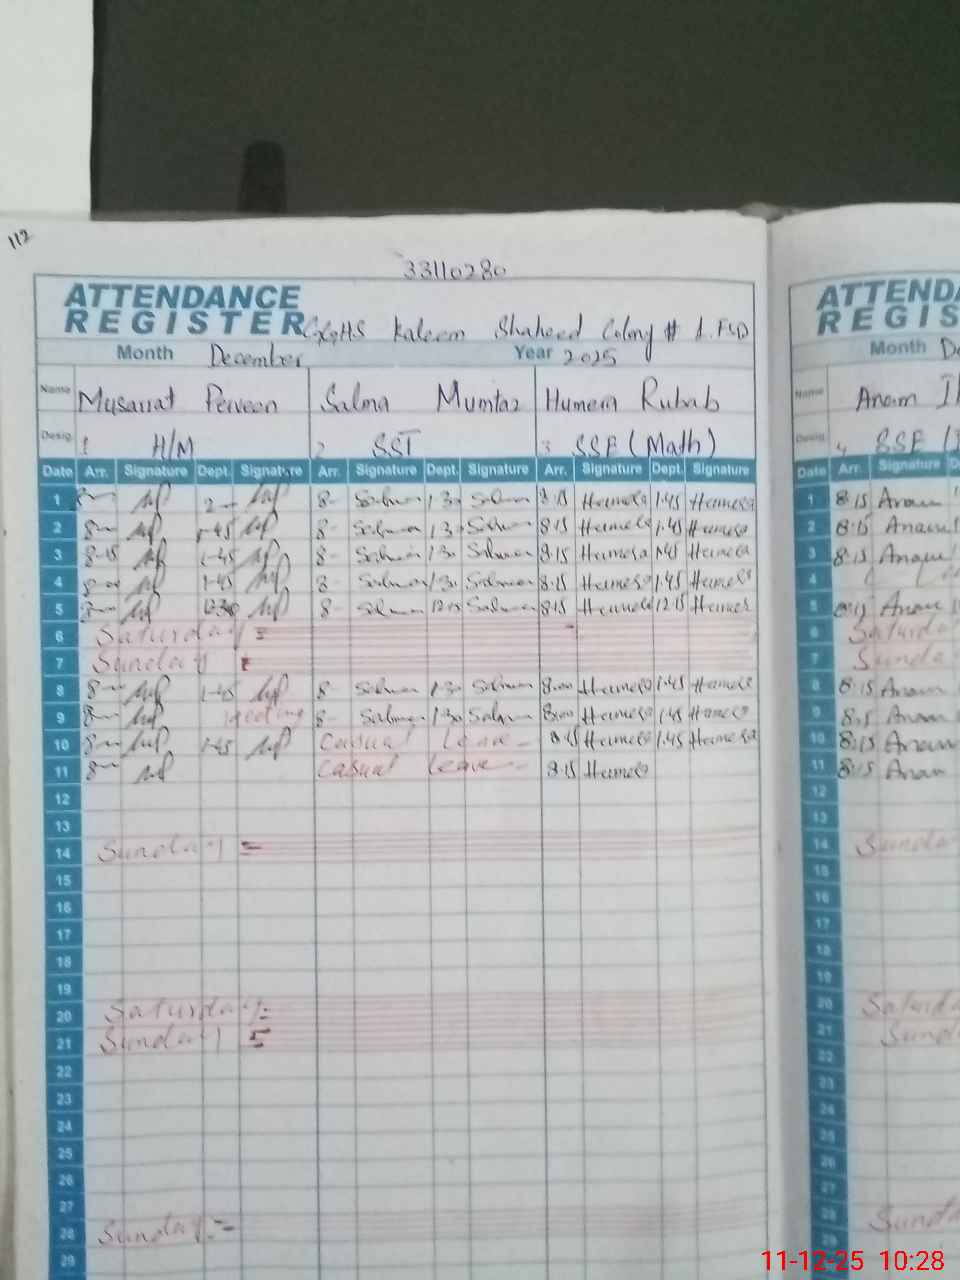 112
33110280
ATTENDANCE
REGISTER GGHS Kaleem Shaheed Colony # 1. FSD
Month December Year 2025
Name Musarrat Perveen Salma Mumtaz Humera Rubab
Desig. 1 H/M 2 SST 3 SSE (Math)
Date Arr. Signature Dept. Signature Arr. Signature Dept. Signature Arr. Signature Dept. Signature
1 8- 2- 8- Salma 1.30 Salma 8.15 Humera 1.45 Humera
2 8- 1-45 8- Salma 1.30 Salma 8.15 Humera 1.45 Humera
3 8-15 1-45 8- Salma 1.30 Salma 8.15 Humera 1.45 Humera
4 8-00 1-45 8- Salma 1.30 Salma 8.15 Humera 1.45 Humera
5 8- 12-30 8- Salma 12.15 Salma 8.15 Humera 12.15 Humera
6 Saturday =
7 Sunday
8 8- 1-45 8- Salma 1.30 Salma 8.00 Humera 1.45 Humera
9 8- Meeting 8- Salma 1.30 Salma 8.00 Humera 1.45 Humera
10 8- 1-45 Casual Leave - 8.15 Humera 1.45 Humera
11 8- Casual Leave - 8.15 Humera
12
13
14 Sunday =
15
16
17
18
19
20 Saturday =
21 Sunday =
22
23
24
25
26
27
28 Sunday =
29
ATTENDA
REGIS
Month De
Name Anam
Desig. 4 SSE
Date Arr. Signature
1 8:15 Anam
2 8:15 Anam
3 8:15 Anam
4
5 Anam
6 Saturda
7 Sunda
8 8:15 Anam
9 8.15 Anam
10 8:15 Anam
11 8:15 Anam
12
13
14 Sunda
15
16
17
18
19
20 Saturda
21 Sund
22
23
24
25
26
27
28 Sunda
29
11-12-25 10:28